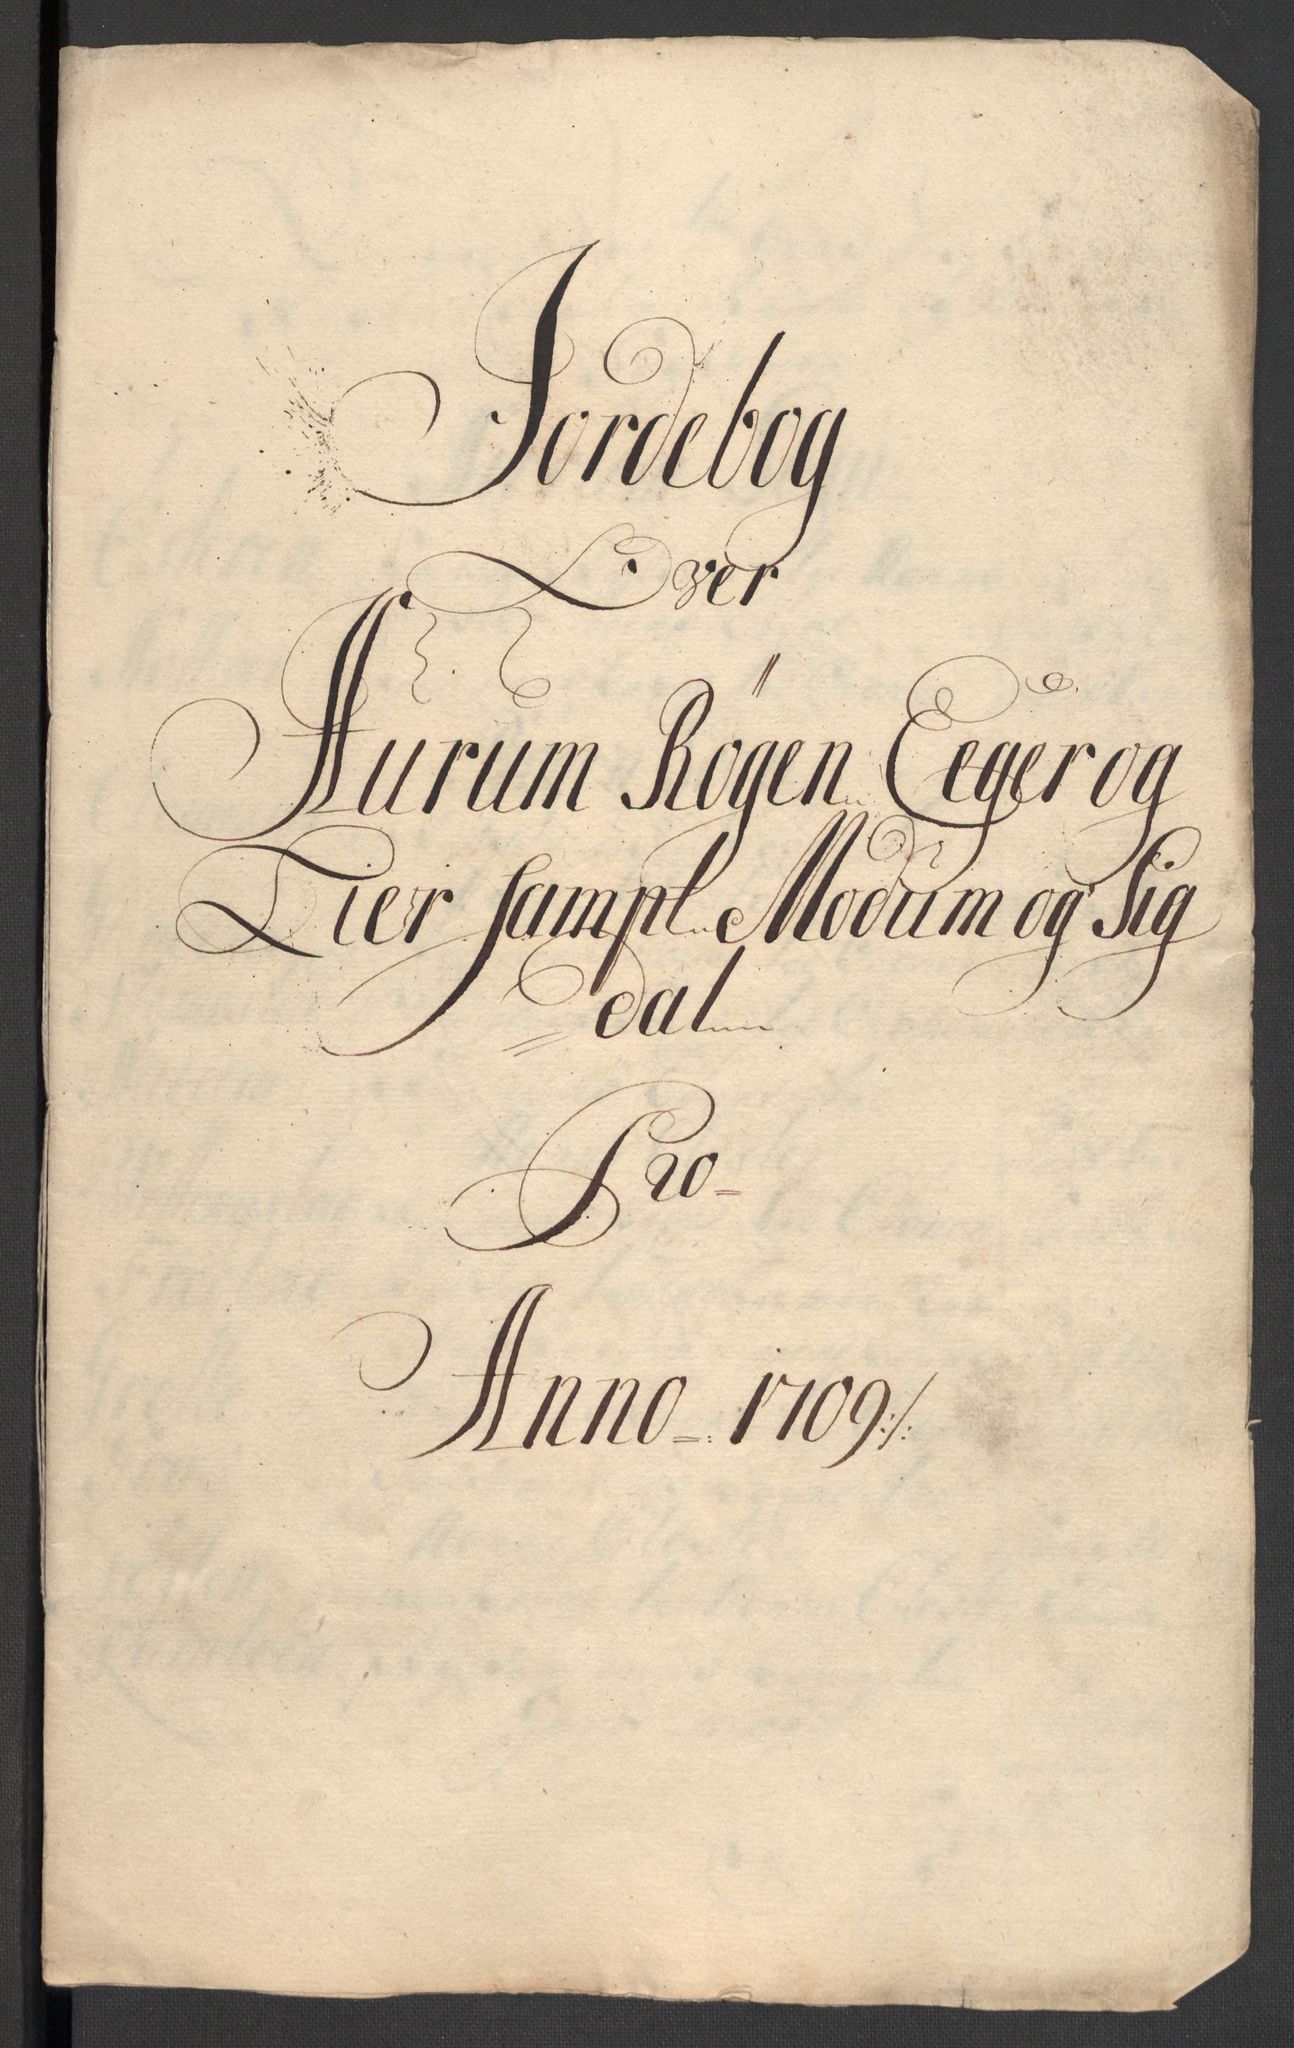 Jordebog
Over
Hurum Røgen Eeger og
Lier sampt Modum og Sig
dal
Pro
Anno 1709